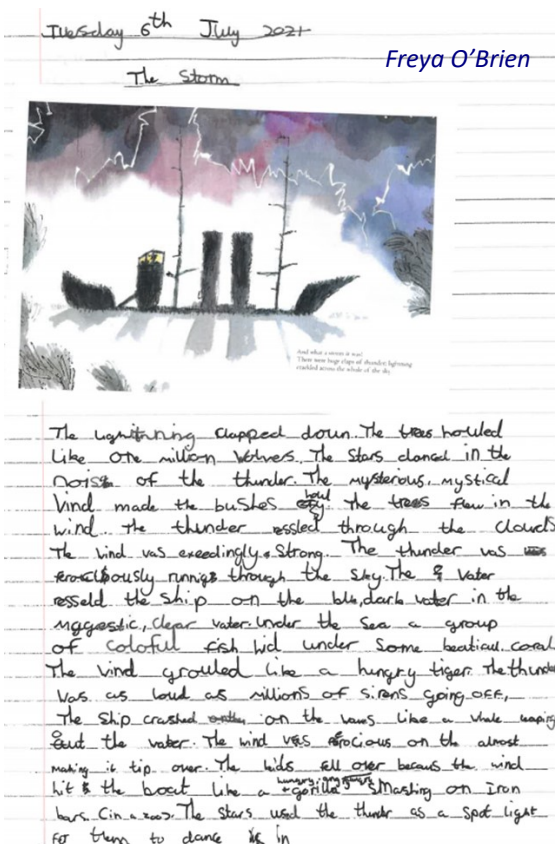 Tuesday 6th July 2021
Freya O'Brien
The Storm
And what a storm it was!
There were huge claps of thunder; lightning
crackled across the whole of the sky.
The clapped down. The trees houled
like one million wolvers. The Stars danced in the
noise of the thunder. The mysterous, mystical
Vind made the bushes howl The trees flew in the
wind. The thunder through the clouds
The vind vas exceedingly Strong. The thunder vas
through the sky. The Vater
the ship on the dark vater in the
clear vater. Under the Sea a group
of coloful fish hid under some coral
The Vind grouled like a hungry tiger. The thunde
Vas as loud as millions of sirens going off,
The Ship crashed on the like a whale leaping
out the vater. The wind vas on the almost
making it tip over. The kids fell over becaus the wind
hit the boat like a hungry gorilla smashing on Iron
bars. (in a zoo). The Stars used the as a Spot light
for them to dance in